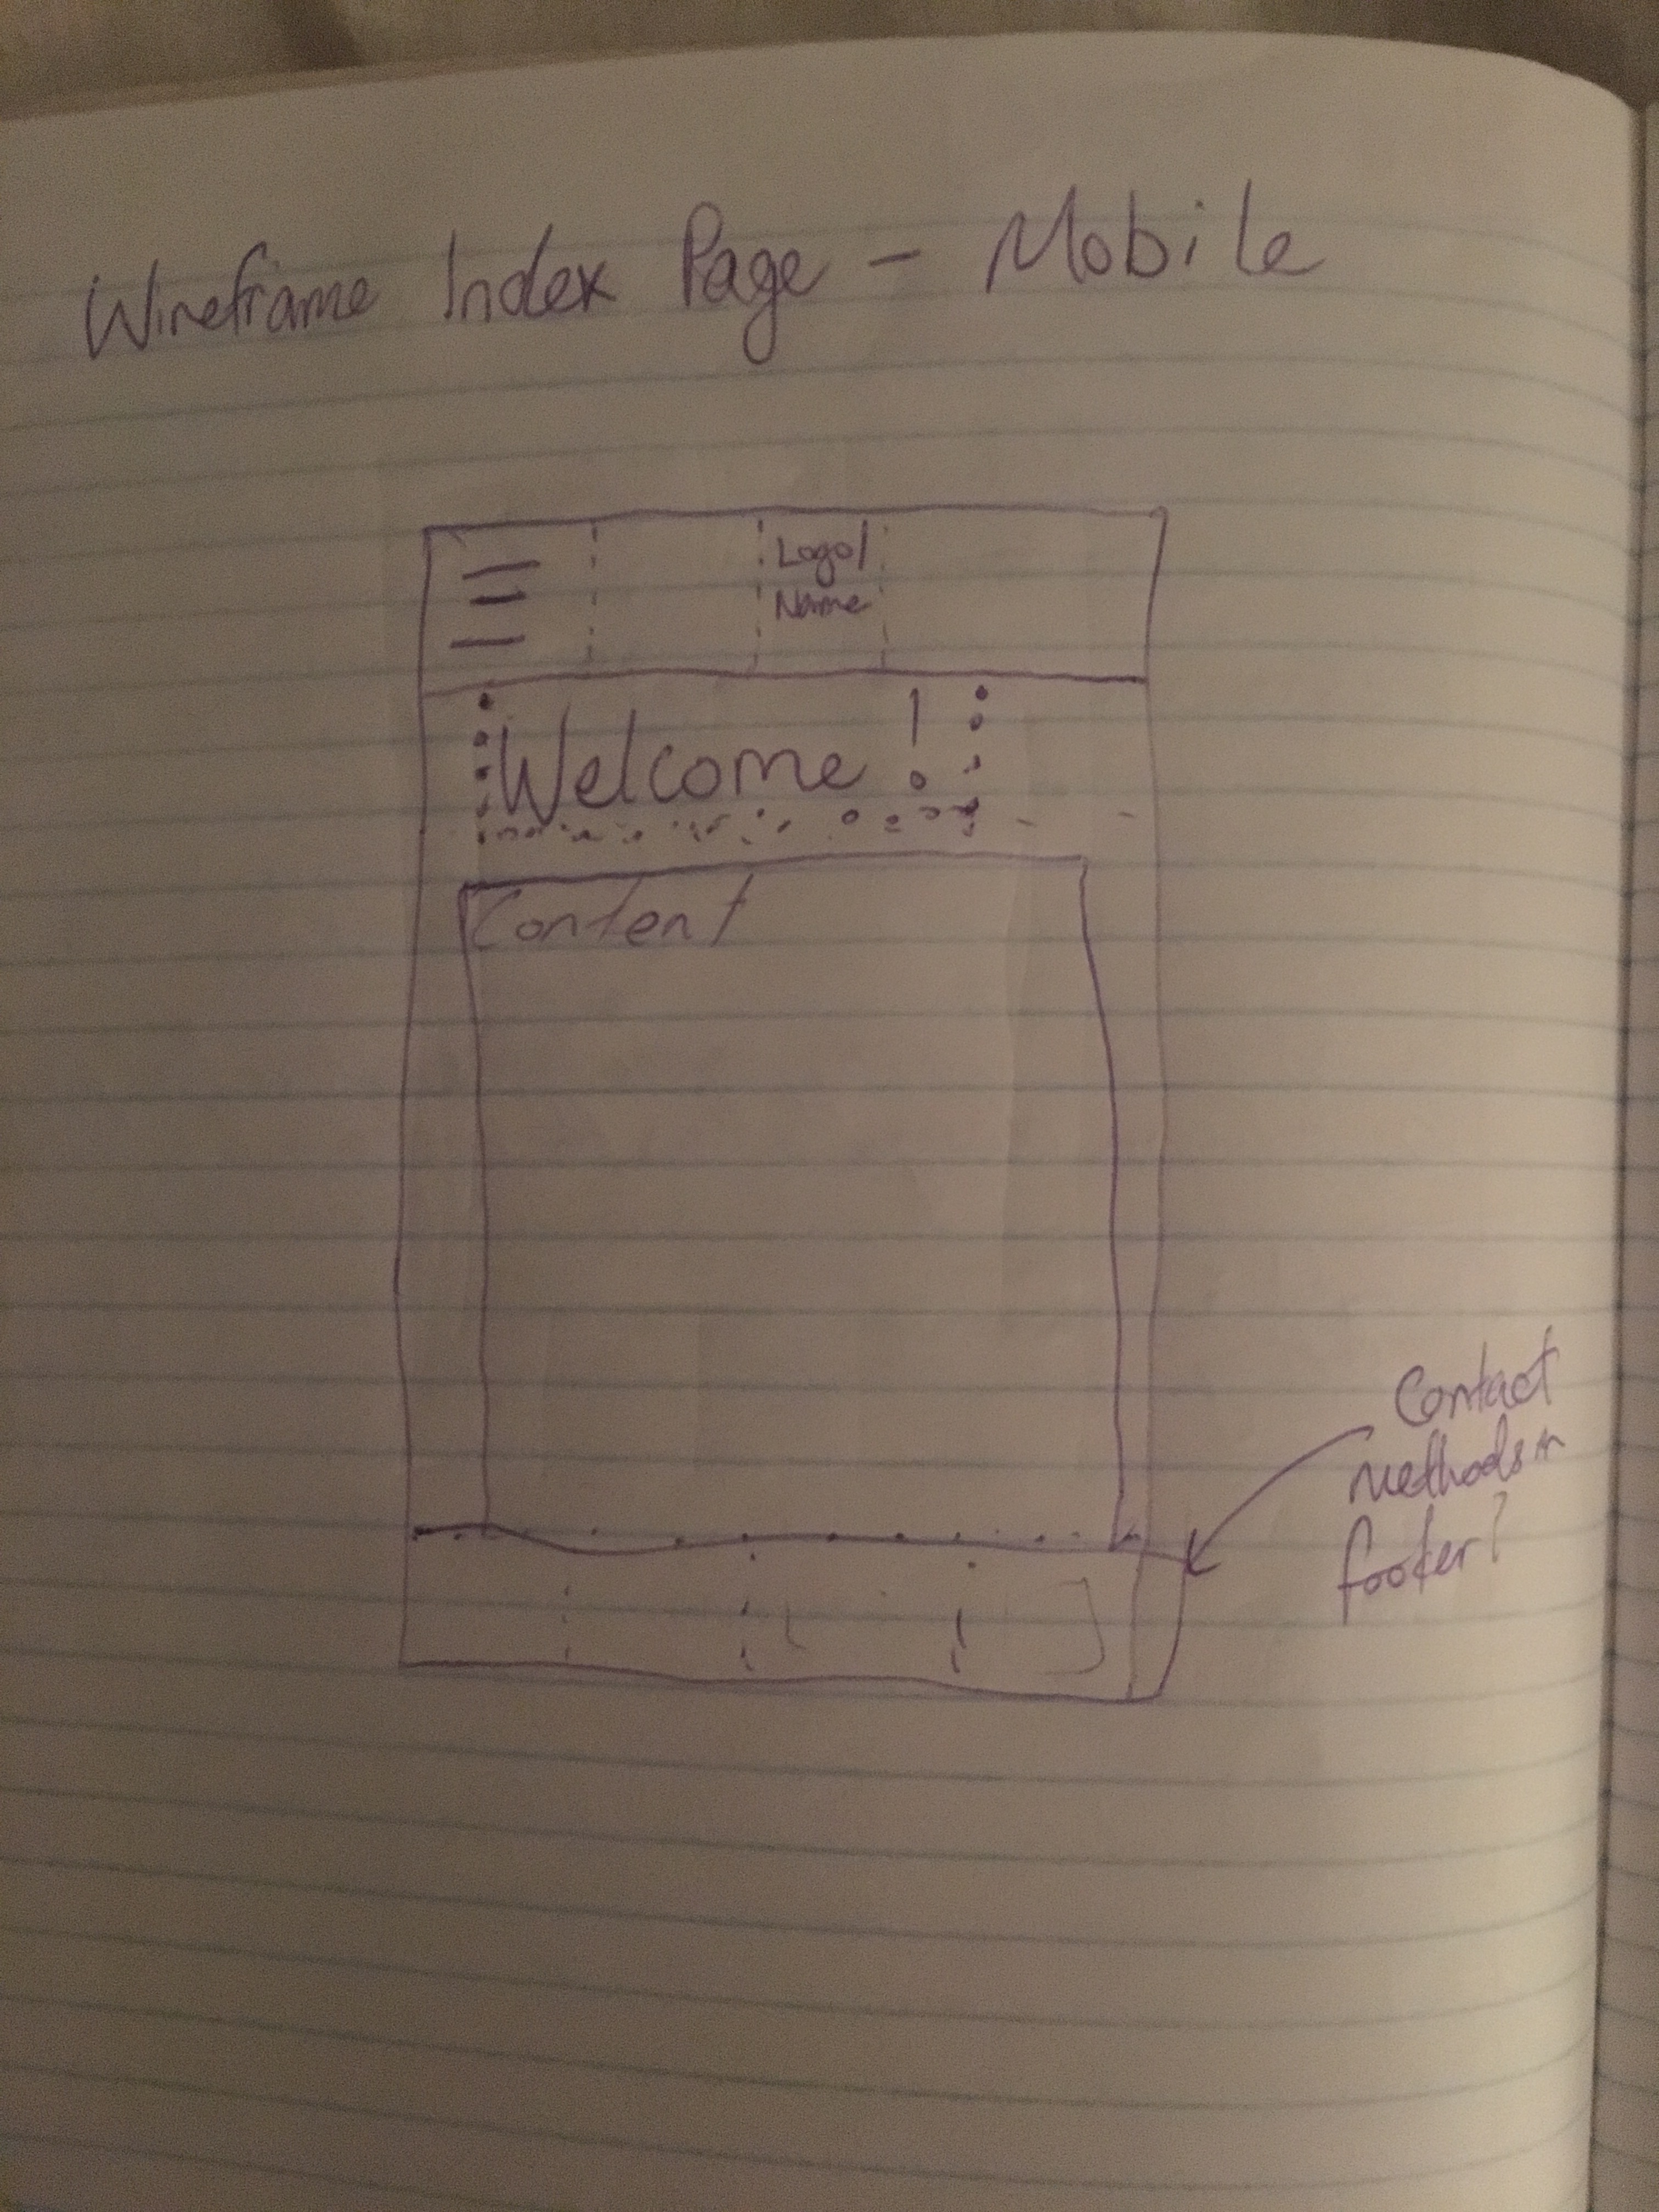 Wireframe Index Page - Mobile
Logo/
Name
Welcome!
Content
Contact
methods in
footer?